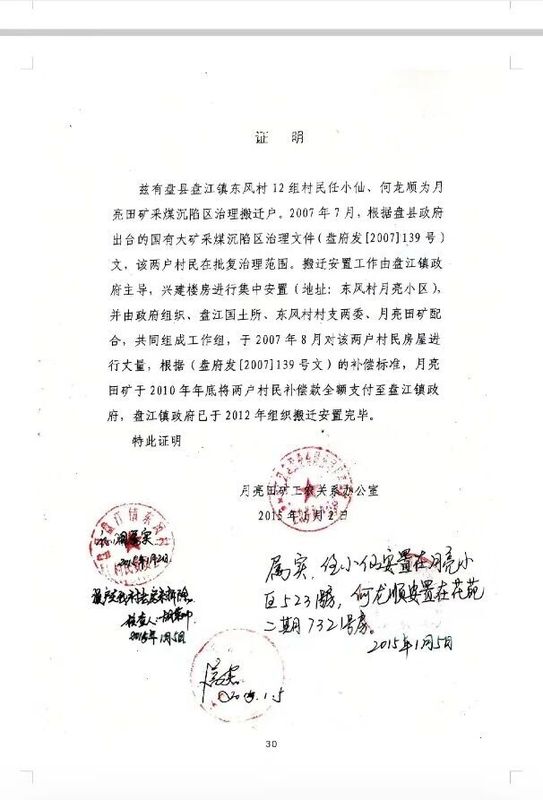 证 明
兹有盘县盘江镇东风村12组村民任小仙、何龙顺为月
亮田矿采煤沉陷区治理搬迁户。2007年7月，根据盘县政府
出台的国有大矿采煤沉陷区治理文件（盘府发[2007]139号）
文，该两户村民在批复治理范围。搬迁安置工作由盘江镇政
府主导，兴建楼房进行集中安置（地址：东风村月亮小区），
并由政府组织、盘江国土所、东风村村支两委、月亮田矿配
合，共同组成工作组，于2007年8月对该两户村民房屋进
行丈量，根据（盘府发[2007]139号文）的补偿标准，月亮
田矿于2010年年底将两户村民补偿款全额支付至盘江镇政
府，盘江镇政府已于2012年组织搬迁安置完毕。
特此证明
月亮田矿工农关系办公室
2015年1月2日
属实
2015年1月2日
2015年1月5日
属实，任小仙安置在月亮小
区523号房，何龙顺安置在花苑
二期7321号房。
2015年1月5日
2015.1.5
30